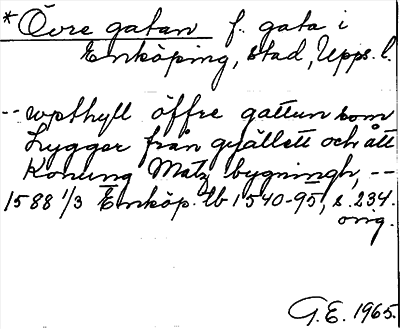 *Övre gatan f. gata i
Enköping, stad, Upps. l.
-- wpthyll öffre gattun som
Lygger från gjällett och ått
Konung Matz bygningh, --
1588 1/3 Enköp. tb 1540-95, s. 234.
orig.
G.E. 1965.